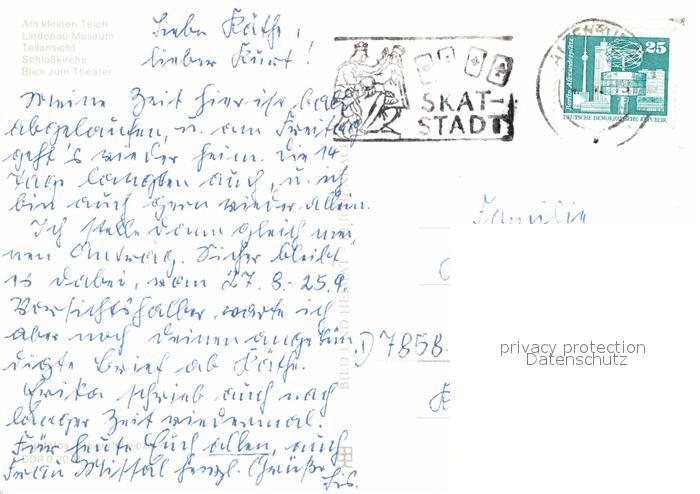 Am kleinen Teich
Lindenau Museum
Teilansicht
Schloßkirche
Blick zum Theater
Liebe Käthe,
lieber Kurt!
Meine Zeit hier ist bald
abgelaufen, u. am Freitag
geht's wieder heim. Die 14
Tage langten auch, u. ich
bin auch gern wieder allein.
Ich stelle dann gleich mei
nen Antrag. Sicher bleibt
es dabei, vom 27. 8.- 25.9.
Vorsichtshalber warte ich
aber noch deinen angekün
digte Brief ab Käthe.
Erika schrieb auch nach
langer Zeit wiedermal.
Für heute Euch allen, auch
Frau herzl. Grüße
SKAT-
STADT
25
Berlin-Alexanderplatz
DEUTSCHE DEMOKRATISCHE REPUBLIK
Familie
D 7858
privacy protection
Datenschutz
BILD UND HEIMAT